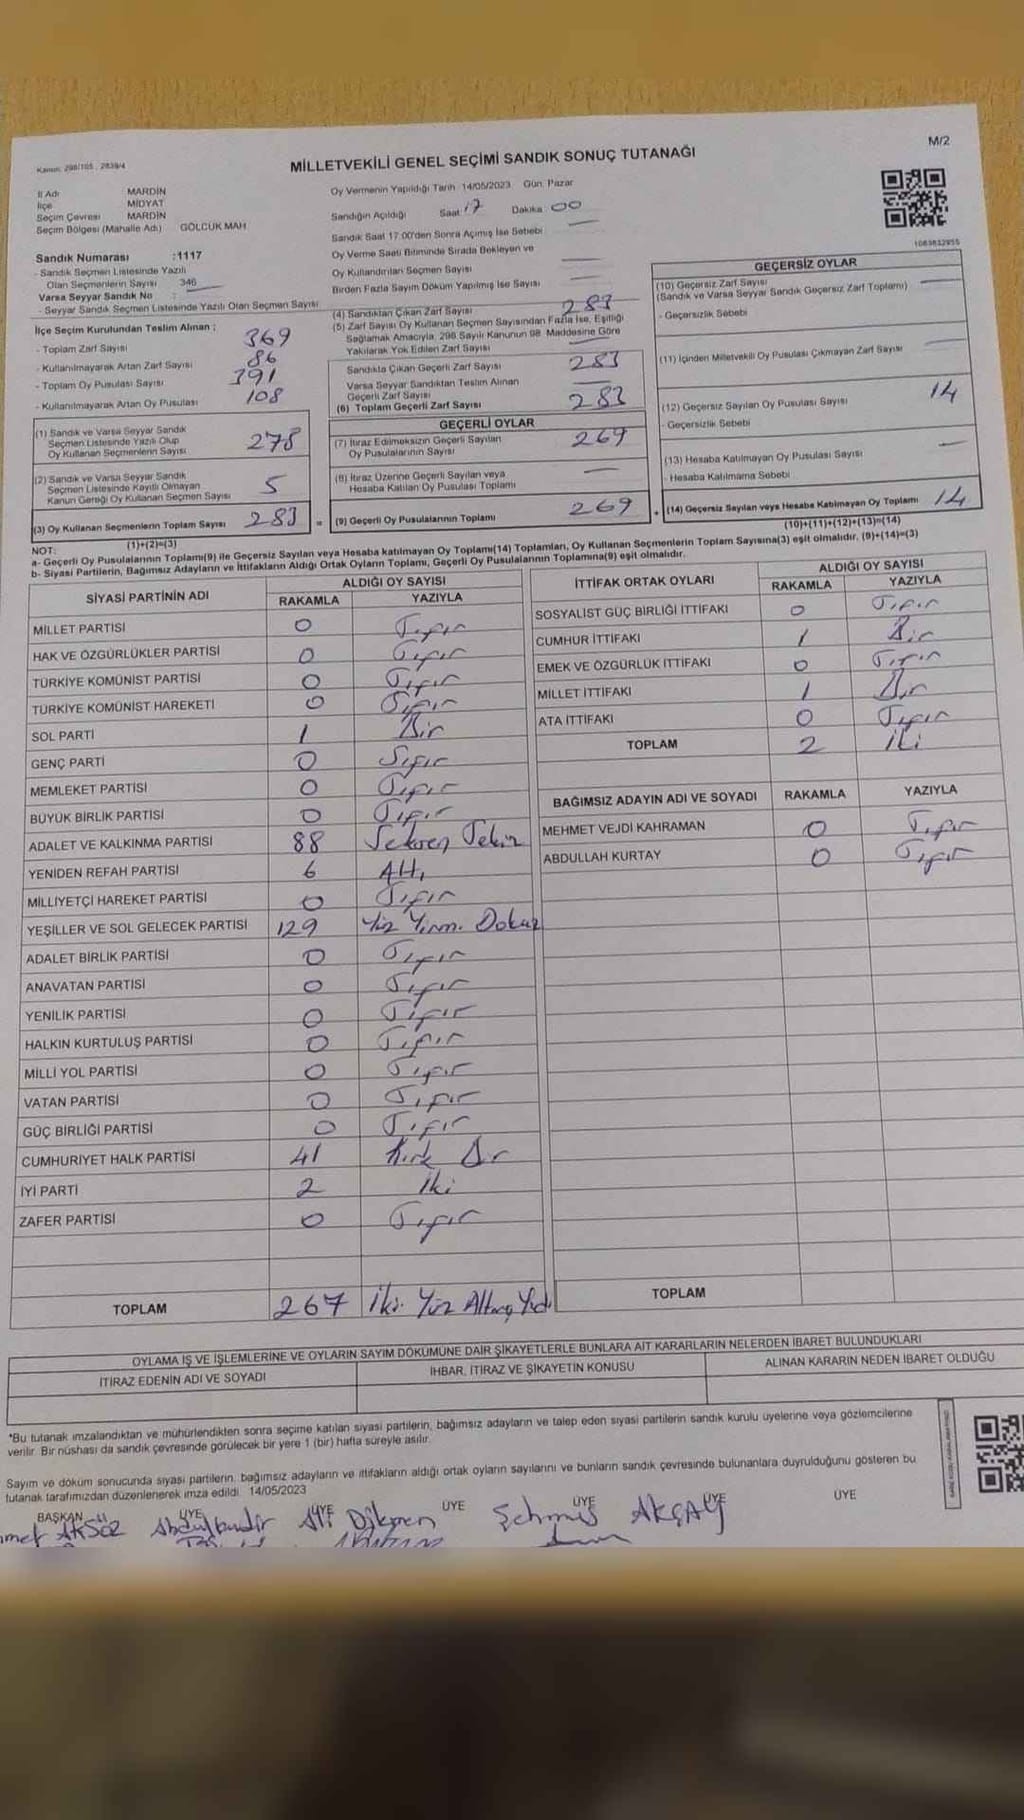 M/2
Kanun: 298/105 , 2839/4
MİLLETVEKİLİ GENEL SEÇİMİ SANDIK SONUÇ TUTANAĞI
İl Adı MARDİN
İlçe MİDYAT
Seçim Çevresi MARDİN
Seçim Bölgesi (Mahalle Adı) GÖLCÜK MAH
Oy Vermenin Yapıldığı Tarih 14/05/2023 Gün: Pazar
Sandığın Açıldığı Saat 17 Dakika 00
Sandık Saat 17:00'den Sonra Açımış İse Sebebi
Oy Verme Saati Bitiminde Sırada Bekleyen ve
Oy Kullandırılan Seçmen Sayısı
Birden Fazla Sayım Döküm Yapılmış İse Sayısı
1083832955
Sandık Numarası :1117
- Sandık Seçmen Listesinde Yazılı
Olan Seçmenlerin Sayısı 346
Varsa Seyyar Sandık No :
- Seyyar Sandık Seçmen Listesinde Yazılı Olan Seçmen Sayısı
İlçe Seçim Kurulundan Teslim Alınan :
- Toplam Zarf Sayısı 369
- Kullanılmayarak Artan Zarf Sayısı 86
- Toplam Oy Pusulası Sayısı 391
- Kullanılmayarak Artan Oy Pusulası 108
(1) Sandık ve Varsa Seyyar Sandık
Seçmen Listesinde Yazılı Olup
Oy Kullanan Seçmenlerin Sayısı 278
(2) Sandık ve Varsa Seyyar Sandık
Seçmen Listesinde Kayıtlı Olmayan
Kanun Gereği Oy Kullanan Seçmen Sayısı 5
(3) Oy Kullanan Seçmenlerin Toplam Sayısı 283 =
(1)+(2)=(3)
(4) Sandıktan Çıkan Zarf Sayısı 283
(5) Zarf Sayısı Oy Kullanan Seçmen Sayısından Fazla İse, Eşitliği
Sağlamak Amacıyla, 298 Sayılı Kanunun 98. Maddesine Göre
Yakılarak Yok Edilen Zarf Sayısı
Sandıkta Çıkan Geçerli Zarf Sayısı 283
Varsa Seyyar Sandıktan Teslim Alınan
Geçerli Zarf Sayısı
(6) Toplam Geçerli Zarf Sayısı 283
GEÇERLİ OYLAR
(7) İtiraz Edilmeksizin Geçerli Sayılan
Oy Pusulalarının Sayısı 269
(8) İtiraz Üzerine Geçerli Sayılan veya
Hesaba Katılan Oy Pusulası Toplamı
(9) Geçerli Oy Pusulalarının Toplamı 269 +
GEÇERSİZ OYLAR
(10) Geçersiz Zarf Sayısı
(Sandık ve Varsa Seyyar Sandık Geçersiz Zarf Toplamı)
- Geçersizlik Sebebi
(11) İçinden Milletvekili Oy Pusulası Çıkmayan Zarf Sayısı
(12) Geçersiz Sayılan Oy Pusulası Sayısı 14
- Geçersizlik Sebebi
(13) Hesaba Katılmayan Oy Pusulası Sayısı
- Hesaba Katılmama Sebebi
(14) Geçersiz Sayılan veya Hesaba Katılmayan Oy Toplamı 14
(10)+(11)+(12)+(13)=(14)
NOT:
a- Geçerli Oy Pusulalarının Toplamı(9) ile Geçersiz Sayılan veya Hesaba katılmayan Oy Toplamı(14) Toplamları, Oy Kullanan Seçmenlerin Toplam Sayısına(3) eşit olmalıdır. (9)+(14)=(3)
b- Siyasi Partilerin, Bağımsız Adayların ve İttifakların Aldığı Ortak Oyların Toplamı, Geçerli Oy Pusulalarının Toplamına(9) eşit olmalıdır.
SİYASİ PARTİNİN ADI ALDIĞI OY SAYISI
RAKAMLA YAZIYLA
MİLLET PARTİSİ 0 Sıfır
HAK VE ÖZGÜRLÜKLER PARTİSİ 0 Sıfır
TÜRKİYE KOMÜNİST PARTİSİ 0 Sıfır
TÜRKİYE KOMÜNİST HAREKETİ 0 Sıfır
SOL PARTİ 1 Bir
GENÇ PARTİ 0 Sıfır
MEMLEKET PARTİSİ 0 Sıfır
BÜYÜK BİRLİK PARTİSİ 0 Sıfır
ADALET VE KALKINMA PARTİSİ 88 Seksen Sekiz
YENİDEN REFAH PARTİSİ 6 Altı
MİLLİYETÇİ HAREKET PARTİSİ 0 Sıfır
YEŞİLLER VE SOL GELECEK PARTİSİ 129 Yüz Yirmi Dokuz
ADALET BİRLİK PARTİSİ 0 Sıfır
ANAVATAN PARTİSİ 0 Sıfır
YENİLİK PARTİSİ 0 Sıfır
HALKIN KURTULUŞ PARTİSİ 0 Sıfır
MİLLİ YOL PARTİSİ 0 Sıfır
VATAN PARTİSİ 0 Sıfır
GÜÇ BİRLİĞİ PARTİSİ 0 Sıfır
CUMHURİYET HALK PARTİSİ 41 Kırk Bir
İYİ PARTİ 2 İki
ZAFER PARTİSİ 0 Sıfır
TOPLAM 267 İki Yüz Altmış Yedi
İTTİFAK ORTAK OYLARI ALDIĞI OY SAYISI
RAKAMLA YAZIYLA
SOSYALİST GÜÇ BİRLİĞİ İTTİFAKI 0 Sıfır
CUMHUR İTTİFAKI 1 Bir
EMEK VE ÖZGÜRLÜK İTTİFAKI 0 Sıfır
MİLLET İTTİFAKI 1 Bir
ATA İTTİFAKI 0 Sıfır
TOPLAM 2 İki
BAĞIMSIZ ADAYIN ADI VE SOYADI RAKAMLA YAZIYLA
MEHMET VEJDİ KAHRAMAN 0 Sıfır
ABDULLAH KURTAY 0 Sıfır
TOPLAM
OYLAMA İŞ VE İŞLEMLERİNE VE OYLARIN SAYIM DÖKÜMÜNE DAİR ŞİKAYETLERLE BUNLARA AİT KARARLARIN NELERDEN İBARET BULUNDUKLARI
İTİRAZ EDENİN ADI VE SOYADI İHBAR, İTİRAZ VE ŞİKAYETİN KONUSU ALINAN KARARIN NEDEN İBARET OLDUĞU
*Bu tutanak imzalandıktan ve mühürlendikten sonra seçime katılan siyasi partilerin, bağımsız adayların ve talep eden siyasi partilerin sandık kurulu üyelerine veya gözlemcilerine
verilir. Bir nüshası da sandık çevresinde görülecek bir yere 1 (bir) hafta süreyle asılır.
Sayım ve döküm sonucunda siyasi partilerin, bağımsız adayların ve ittifakların aldığı ortak oyların sayılarını ve bunların sandık çevresinde bulunanlara duyrulduğunu gösteren bu
tutanak tarafımızdan düzenlenerek imza edildi. 14/05/2023
BAŞKAN ÜYE ÜYE ÜYE ÜYE ÜYE ÜYE
AKSÖZ Ali Dikmen Şehmus AKÇAY